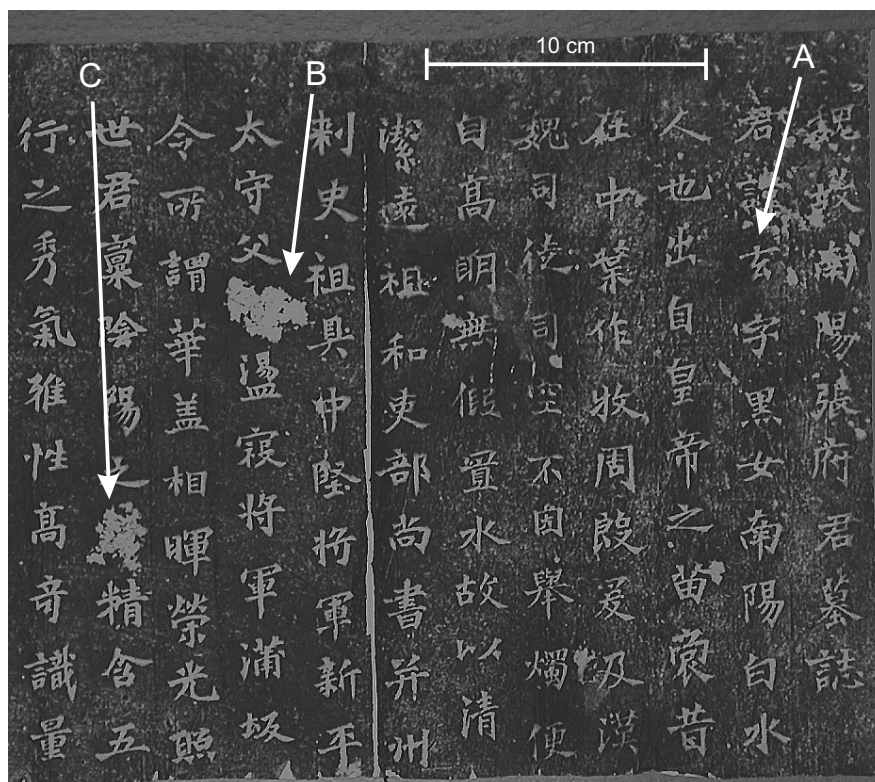 10 cm
A
B
C
魏故南陽張府君墓誌
君諱玄字黑女南陽白水
人也出自皇帝之苗裔昔
在中葉作牧周殷爰及漢
魏司徒司空不因舉燭便
自髙明無假置水故以清
潔遠祖和吏部尚書并州
刺史祖具中堅將軍新平
太守父盪寇將軍蒲坂
令所謂華盖相暉榮光照
世君稟陰陽之精含五
行之秀氣雅性髙奇識量